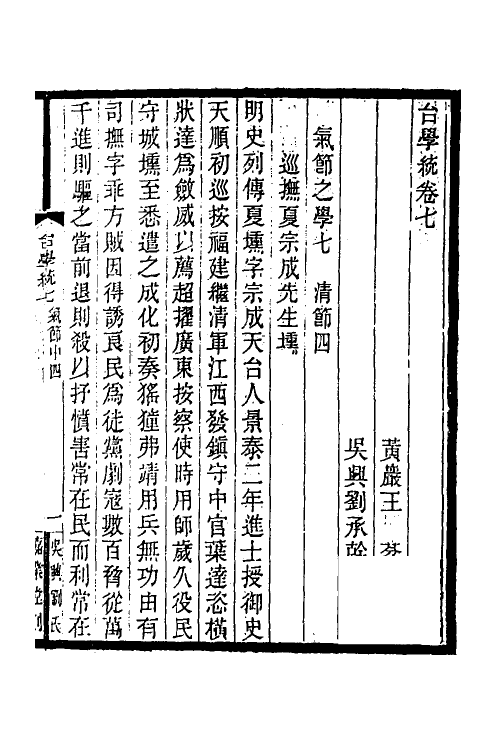 台學統卷七
黃巖王
吳興劉承幹
氣節之學七　清節四
巡撫夏宗成先生壎
明史列傳夏壎字宗成天台人景泰二年進士授御史
天順初巡按福建繼清軍江西發鎮守中官葉達恣橫
狀達為斂威以薦超擢廣東按察使時用師歲久役民
守城壎至悉遣之成化初奏猺獞弗靖用兵無功由有
司撫字乖方賊因得誘良民為徒黨劇寇數百脅從萬
千進則驅之當前退則殺以抒憤害常在民而利常在
台學統七　氣節中四
一
吳興劉氏
嘉業堂刊